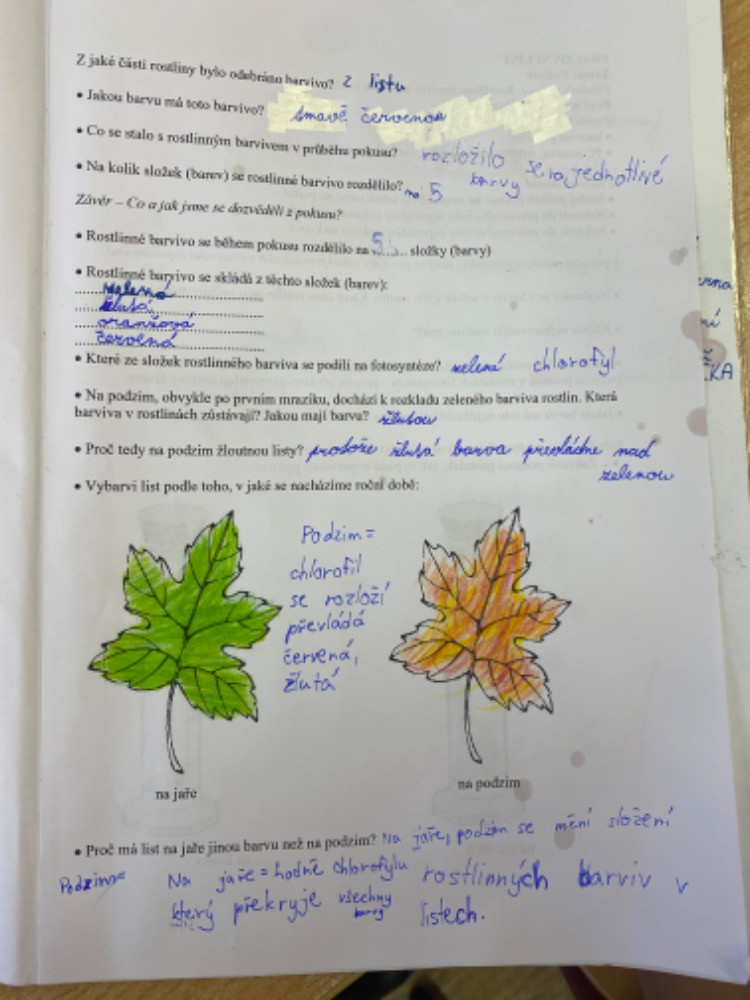 Z jaké části rostliny bylo odebráno barvivo? z listu
• Jakou barvu má toto barvivo? tmavě červenou
• Co se stalo s rostlinným barvivem v průběhu pokusu? rozložilo se na jednotlivé
barvy
• Na kolik složek (barev) se rostlinné barvivo rozdělilo? na 5
Závěr – Co a jak jsme se dozvěděli z pokusu?
• Rostlinné barvivo se během pokusu rozdělilo na 5 složky (barvy)
• Rostlinné barvivo se skládá z těchto složek (barev):
zelená
žlutá
oranžová
červená
• Které ze složek rostlinného barviva se podílí na fotosyntéze? zelená chlorofyl
• Na podzim, obvykle po prvním mrazíku, dochází k rozkladu zeleného barviva rostlin. Která
barviva v rostlinách zůstávají? Jakou mají barvu? žlutou
• Proč tedy na podzim žloutnou listy? protože žlutá barva převládne nad
zelenou
• Vybarvi list podle toho, v jaké se nacházíme roční době:
Podzim =
chlorofil
se rozloží
převládá
červená,
žlutá
na jaře
na podzim
• Proč má list na jaře jinou barvu než na podzim? Na jaře, podzim se mění složení
rostlinných barviv v
listech.
Podzim=
Na jaře = hodně chlorofylu
který překryje všechny
barvy
KA